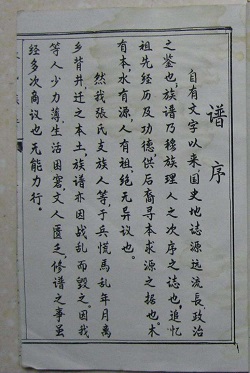 谱序
自有文字以来国史地志源远流長政治
之鉴也族谱乃穆族理人之次序之誌也,追忆
祖先经历及功德供后裔寻本求源之据也。木
有本,水有源,人有祖,绝无异议也。
然我张氏支族人等于兵慌馬乱年月离
乡背井,迁之本土,族谱亦因战乱而毁之。因我
等人少力薄,生活困窘,文人匮乏,修谱之事虽
经多次商议也无能力行。